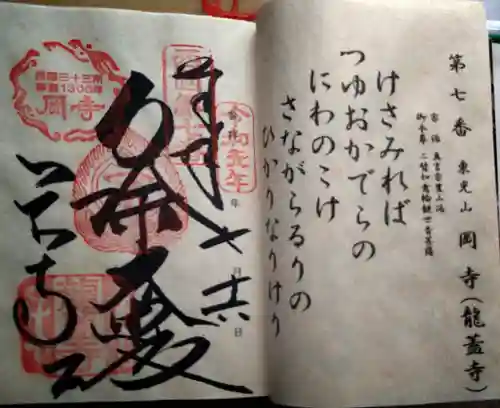 第七番 東光山 岡寺(龍蓋寺)
宗派 真言宗豊山派
御本尊 二臂如意輪観世音菩薩
けさみれば
つゆおかでらの
にわのこけ
さながらるりの
ひかりなりけり
西国三十三所
草創1300年
岡寺
西国第七番
令和元年
奉拝
年 七月 十六日
岡寺